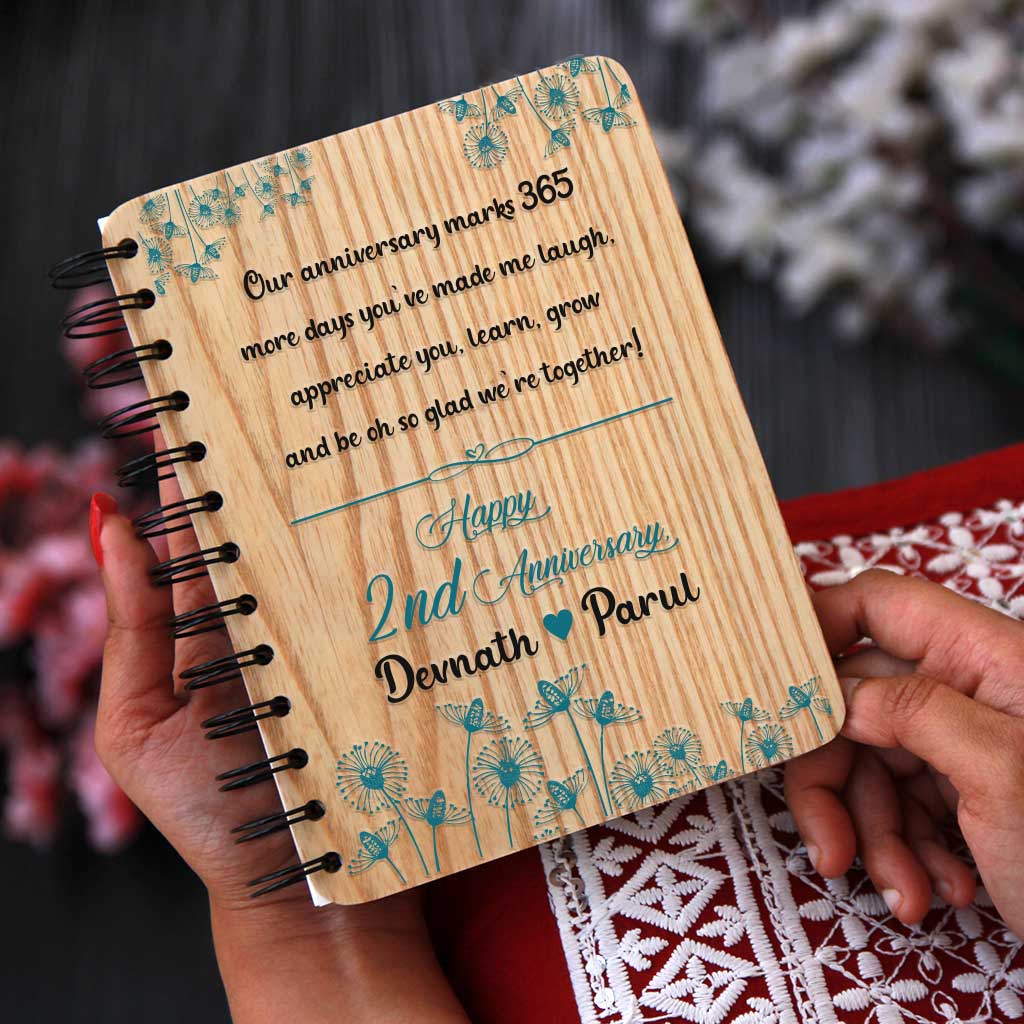 Our anniversary marks 365
more days you've made me laugh,
appreciate you, learn, grow
and be oh so glad we're together!
Happy
2nd Anniversary,
Devnath Parul